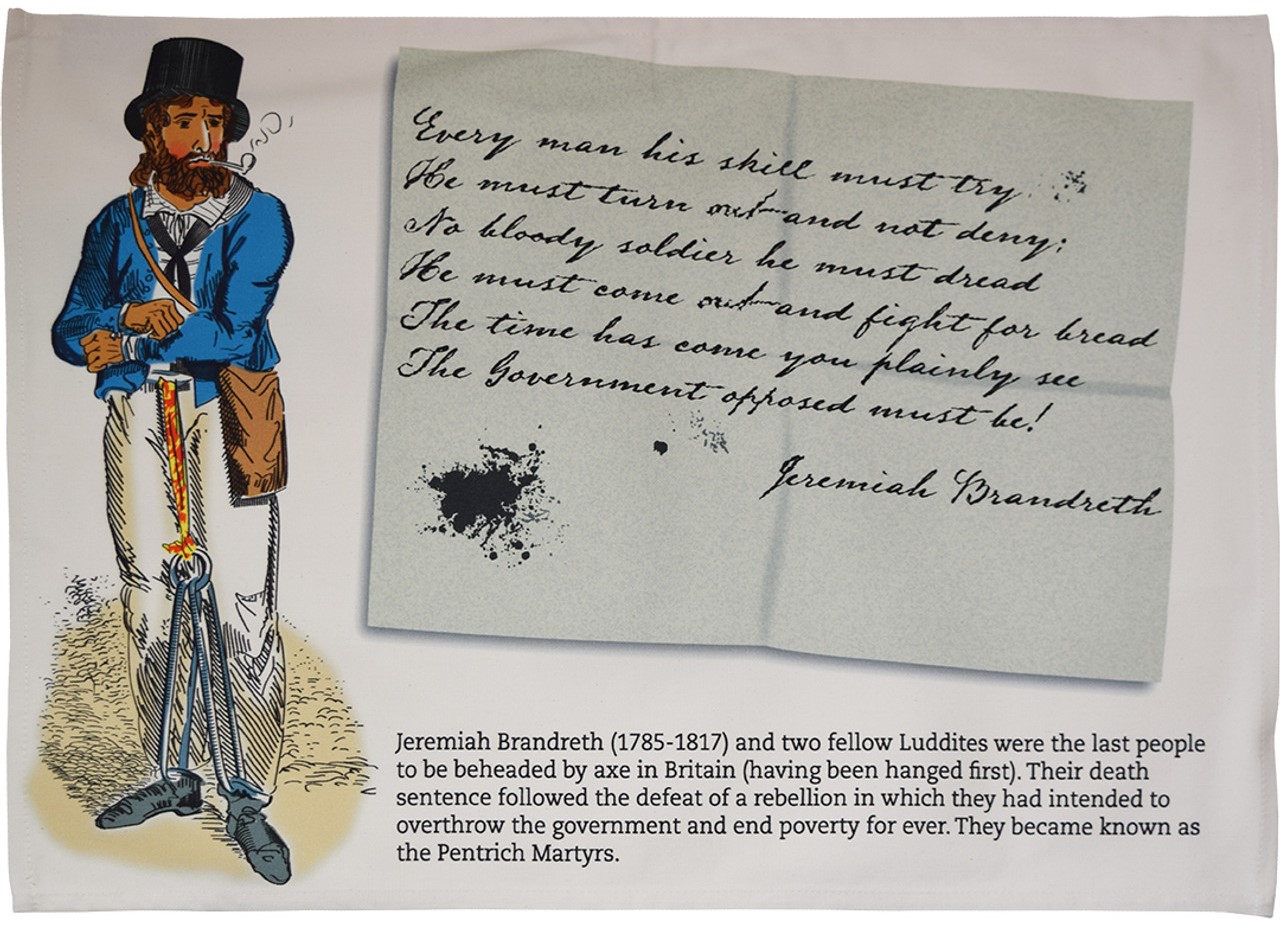 Every man his skill must try
He must turn out and not deny;
No bloody soldier he must dread
He must come out and fight for bread
The time has come you plainly see
The Government opposed must be!
Jeremiah Brandreth
Jeremiah Brandreth (1785-1817) and two fellow Luddites were the last people
to be beheaded by axe in Britain (having been hanged first). Their death
sentence followed the defeat of a rebellion in which they had intended to
overthrow the government and end poverty for ever. They became known as
the Pentrich Martyrs.